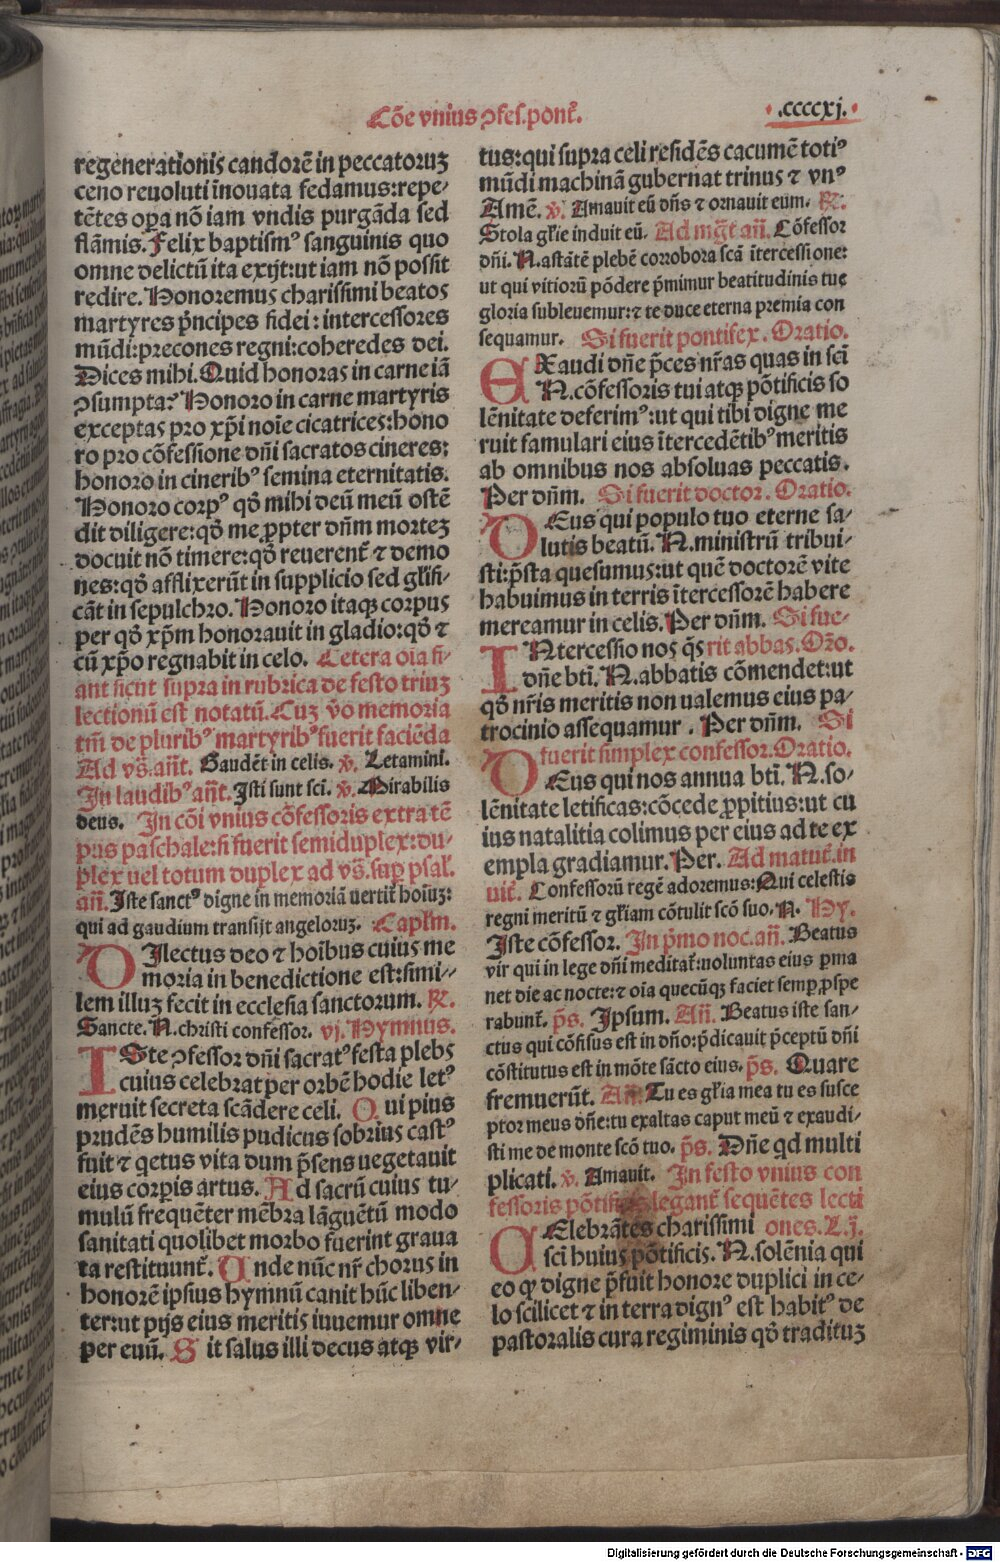 Cōe vnius ↄfes.pont̄.
.ccccxj.
regenerationis candorē in peccatoruꝫ
ceno reuoluti īnouata fedamus:repe⸗
tētes oꝑa nō iam vndis purgāda sed
flāmis. Felix baptismꝰ sanguinis quo
omne delictū ita exijt:ut iam nō possit
redire. Honoremus charissimi beatos
martyres p̄ncipes fidei: intercessores
mūdi:precones regni:coheredes dei.
Dices mihi. Quid honoras in carne iā
ↄsumpta? Honoro in carne martyris
exceptas pro xp̄i noīe cicatrices:hono
ro pro cōfessione dn̄i sacratos cineres:
honoro in cineribꝰ semina eternitatis.
Honoro corpꝰ qd̄ mihi deū meū ostē
dit diligere:qd̄ me ꝓpter dn̄m morteꝫ
docuit nō timere:qd̄ reuerent̄ ⁊ demo
nes:qd̄ afflixerūt in supplicio sed gl̄ifi⸗
cāt in sepulchro. Honoro itaqꝫ corpus
per qd̄ xp̄m honorauit in gladio:qd̄ ⁊
cū xp̄o regnabit in celo. Cetera oīa fi⸗
ant sicut supra in rubrica de festo triuꝫ
lectionū est notatū. Cuꝫ v̄o memoria
tm̄ de pluribꝰ martyribꝰ fuerit faciēda
Ad vs̄.ant̄. Gaudēt in celis. v̄. Letamini.
In laudibꝰ ant̄. Isti sunt sc̄i. v̄. Mirabilis
deus. In cōi vnius cōfessoris extra tē
pus paschale:si fuerit semiduplex:du⸗
plex uel totum duplex ad vs̄.suꝑ psal̄.
an̄. Iste sanctꝰ digne in memoriā vertit̄ hoīuꝫ:
qui ad gaudium transijt angeloruꝫ. Capl̄m.
DIlectus deo ⁊ hoībus cuius me
moria in benedictione est:simi⸗
lem illuꝫ fecit in ecclesia sanctorum. ℟.
Sancte. N. christi confessor. vj. Hymnus.
ISte ↄfessor dn̄i sacratꝰ festa plebs
cuius celebrat per orbē hodie letꝰ
meruit secreta scādere celi. Qui pius
prudēs humilis pudicus sobrius castꝰ
fuit ⁊ qetus vita dum p̄sens uegetauit
eius corꝑis artus. Ad sacrū cuius tu⸗
mulū frequēter mēbra lāguētū modo
sanitati quolibet morbo fuerint graua
ta restituunt̄. Unde nūc nr̄ chorus in
honorē ipsius hymnū canit hūc liben⸗
ter:ut pijs eius meritis iuuemur omne
per euū. Sit salus illi decus atqꝫ vir⸗
tus:qui supra celi residēs cacumē totiꝰ
mūdi machinā gubernat trinus ⁊ vnꝰ
Amē. v̄. Amauit eū dn̄s ⁊ ornauit eum. ℟.
Stola gl̄ie induit eū. Ad mḡt an̄. Cōfessor
dn̄i. N. astātē plebē corrobora scā ītercessione:
ut qui vitiorū pōdere p̄mimur beatitudinis tue
gloria subleuemur:⁊ te duce eterna premia con
sequamur. Si fuerit pontifex. Oratio.
EXaudi dn̄e p̄ces nr̄as quas in sc̄i
N. cōfessoris tui atqꝫ pōtificis so
lēnitate deferimꝰ:ut qui tibi digne me
ruit famulari eius ītercedētibꝰ meritis
ab omnibus nos absoluas peccatis.
Per dn̄m. Si fuerit doctor. Oratio.
DEus qui populo tuo eterne sa⸗
lutis beatū. N. ministrū tribui⸗
sti:p̄sta quesumus:ut quē doctorē vite
habuimus in terris ītercessorē habere
mereamur in celis. Per dn̄m. Si fue⸗
INtercessio nos qs̄ rit abbas. Or̄o.
dn̄e bt̄i. N. abbatis cōmendet:ut
qd̄ nr̄is meritis non ualemus eius pa⸗
trocinio assequamur. Per dn̄m. Si
fuerit simplex confessor. Oratio.
DEus qui nos annua bt̄i. N. so⸗
lēnitate letificas:cōcede ꝓpitius:ut cu
ius natalitia colimus per eius ad te ex
empla gradiamur. Per. Ad matut̄. in
uit̄. Confessorū regē adoremus:Qui celestis
regni meritū ⁊ gl̄iam cōtulit scō suo. N. Hy.
Iste cōfessor. In p̄mo noc. an̄. Beatus
vir qui in lege dn̄i meditat̄:uoluntas eius ꝑma
net die ac nocte:⁊ oīa quecūqꝫ faciet semꝑ ꝓspe
rabunt̄. ps̄. Ipsum. An̄. Beatus iste san⸗
ctus qui cōfisus est in dn̄o:p̄dicauit p̄ceptū dn̄i
cōstitutus est in mōte sācto eius. ps̄. Quare
fremuerūt. An̄. Tu es gl̄ia mea tu es susce
ptor meus dn̄e:tu exaltas caput meū ⁊ exaudi⸗
sti me de monte scō tuo. ps̄. Dn̄e qd multi
plicati. v̄. Amauit. In festo vnius con
fessoris pōtificis legant̄ sequētes lecti
CElebrātes charissimi ones. L. j.
sc̄i huius pōtificis. N. solēnia qui
eo ꝙ digne p̄fuit honore duplici in ce⸗
lo scilicet ⁊ in terra dignꝰ est habitꝰ de
pastoralis cura regiminis qd̄ tradituꝫ
Digitalisierung gefördert durch die Deutsche Forschungsgemeinschaft - DFG